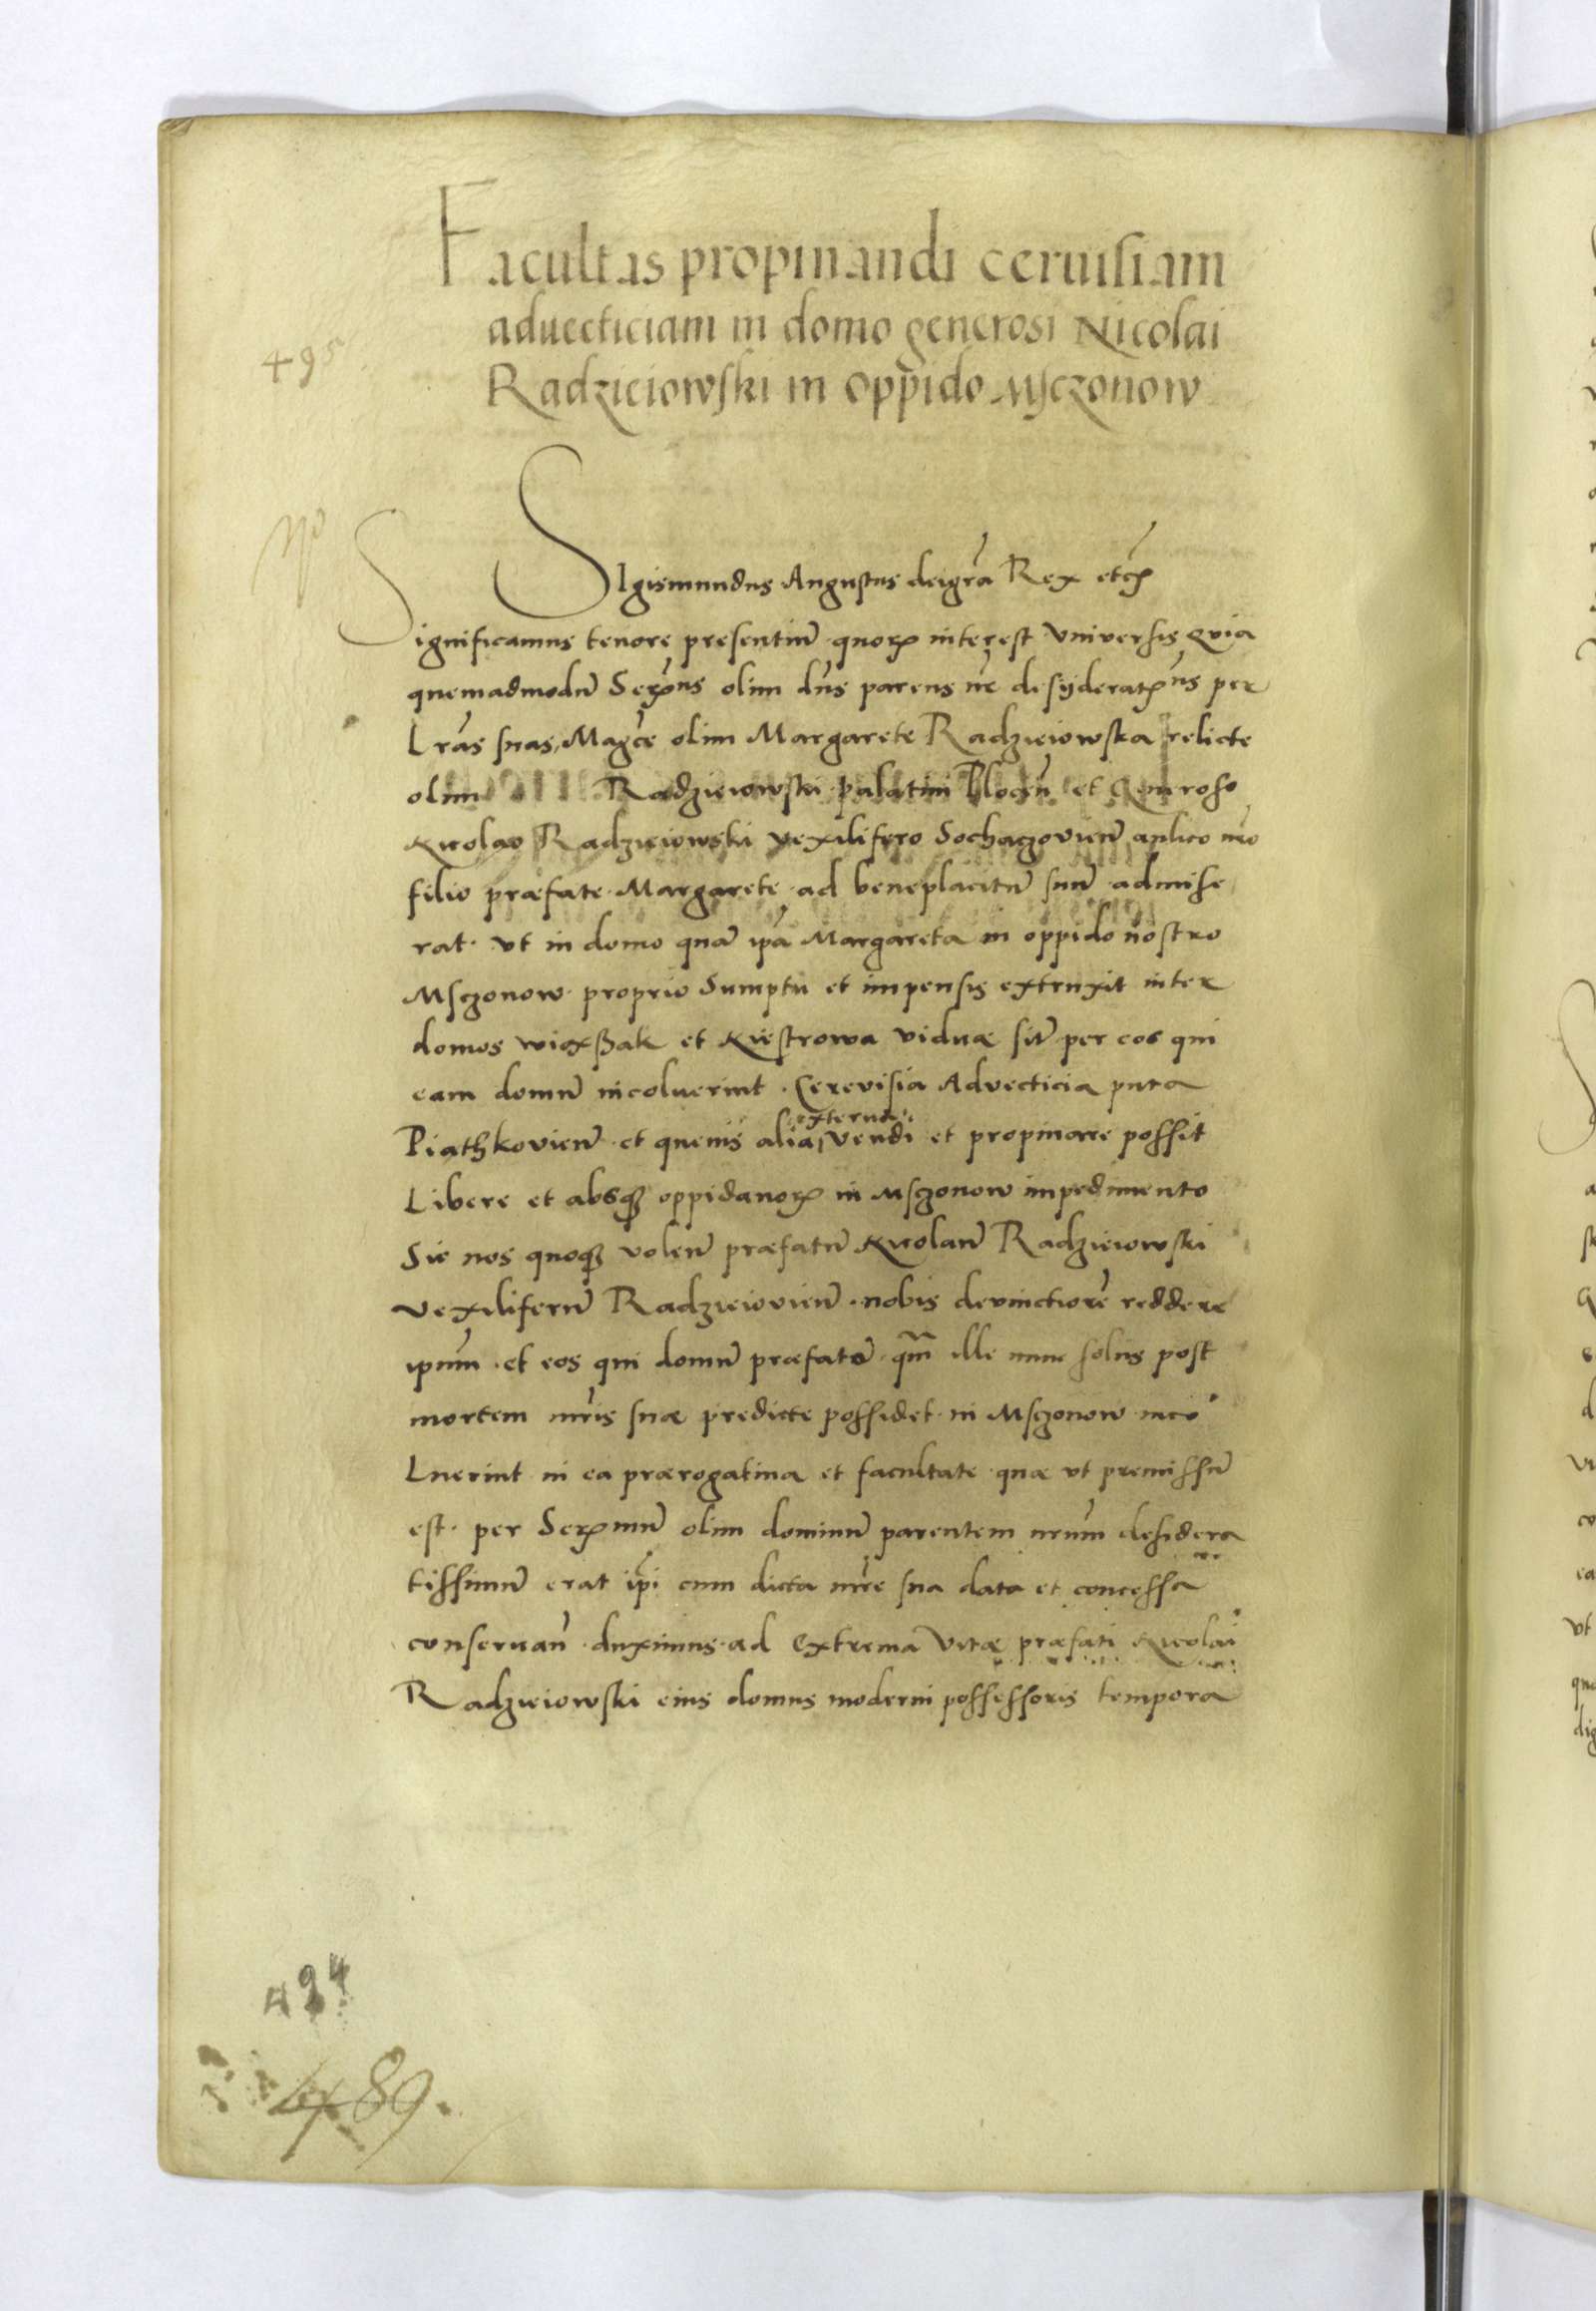 Facultas propinandi ceruisiam
aduecticiam in domo generosi Nicolai
Radzieiowski in oppido Msczonow
495
SIgismundus Augustus dei grã Rex etc̃
Significamus tenore presentiũ quoꝝ interest Vniuersis Quia
quemadmodũ Serꝫmus olim dñs parens nr̃ desyderatꝫmus per
Lrãs suas, Magc̃e olim Margarete Radzieiowska relicte
olim Radzieiowski palatini Plocen̄ et Generoso
Nicolao Radzieiowski vexillifero Sochaczovien̄ aulico nr̃o
filio præfate Margarete ad beneplacitũ suũ admise
rat. vt in domo quã ip̃a Margareta in oppido nostro
Msczonow proprio Sumptu et impensis extruxit inter
domos et viduæ sit̃ per eos qui
eam domũ incoluerint. Cerevisia Advecticia puta
externa
Piathkovien̄ et quevis alia, vendi et propinare possit
Libere et absqꝫ oppidanoꝝ in Msczonow impedimento
Sic nos quoqꝫ volen̄ præfatũ Nicolaũ Radzieiowski
vexilliferũ Radzieiovien̄ nobis devinctiorẽ reddere
ipsum et eos qui domũ præfatã qm̃ ille nunc solus post
mortem mr̃is suæ predicte possidet in Msczonow inco
Luerint in ea prærogatiua et facultate quæ vt premissũ
est. per Serꝫmũ olim dominũ parentem nr̃um desidera
tissimũ erat ip̃i cum dicta mr̃e sua data et concessa
conseruan̄ duximus ad Extrema Vitæ præfati Nicolai
Radzieiowski eius domus moderni possessoris tempora
494
489.